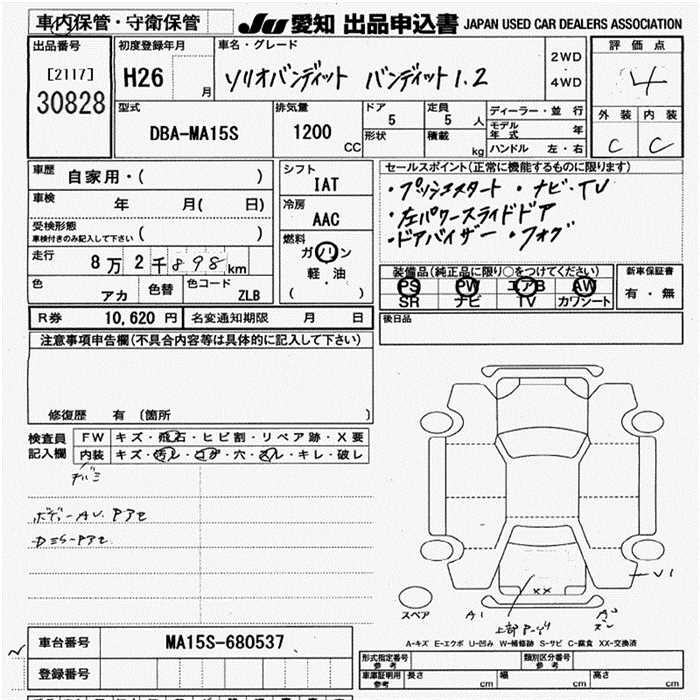 車内保管・守衛保管 JU 愛知 出品申込書 JAPAN USED CAR DEALERS ASSOCIATION
出品番号
[2117]
30828
初度登録年月
H26 月
車名・グレード
ソリオバンディット バンディット1.2
2WD
4WD
評価点
4
外装 内装
C C
型式
DBA-MA15S
排気量
1200 CC
ドア
5
定員
5 人
形状
積載 kg
ディーラー・並行
モデル年式 年
ハンドル 左・右
車歴 自家用・( )
車検 年 月( 日)
受検形態
車検付きのみ記入して下さい ( )
走行 8万2千898km
色 アカ 色替 色コード ZLB
シフト
IAT
冷房
AAC
燃料
ガソリン
軽・油
( )
セールスポイント(正常に機能するものに限ります)
・プッシュスタート ・ナビ・TV
・左パワースライドドア
・ドアバイザー ・フォグ
装備品(純正品に限り○をつけてください)
PS PW エアB AW
SR ナビ TV カワシート
新車保証書
有・無
R券 10,620 円 名変通知期限 月 日
後日品
注意事項申告欄(不具合内容等は具体的に記入して下さい)
修復歴 有 (箇所 )
検査員
記入欄
FW キズ・飛石・ヒビ割・リペア跡・X要
内装 キズ・汚レ・コゲ・穴・スレ・キレ・破レ
ボディーAU PPE
V1
XX
A1
スペア
A-キズ E-エクボ U-凹み W-補修跡 S-サビ C-腐食 XX-交換済
車台番号 MA15S-680537
登録番号
形式指定番号
参考
類別区分番号
参考
車庫証明用
参考
長さ cm 幅 cm 高さ cm